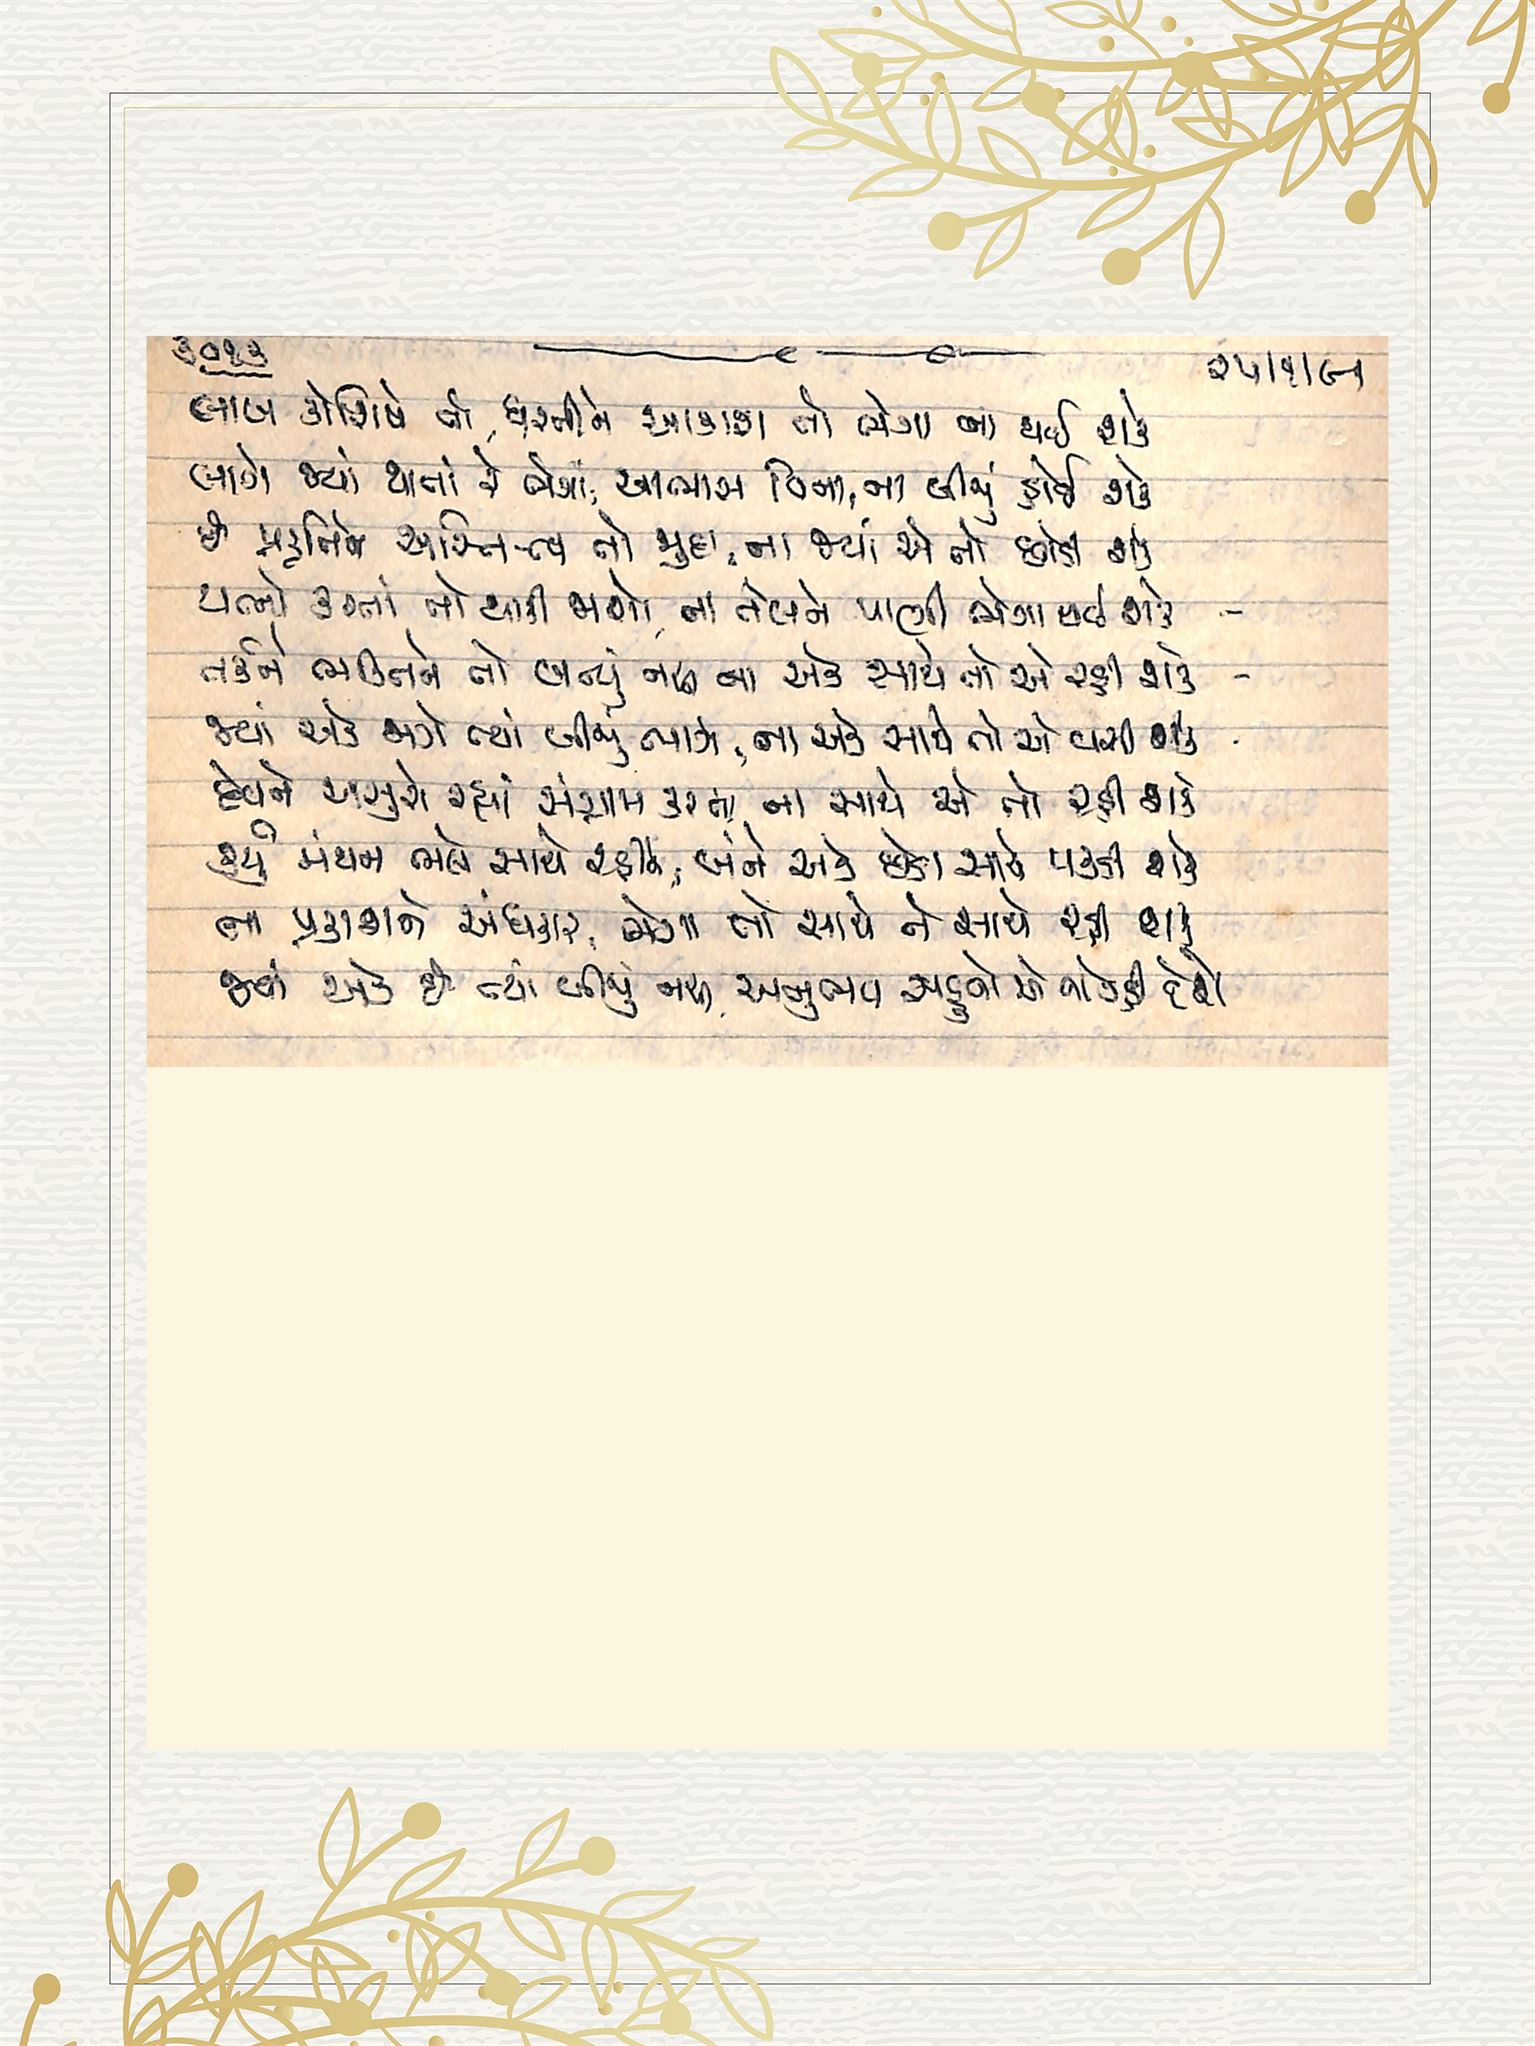 ૩૦૧૩
૨૫/૧/૯૧
લાખ કોશિષે તો, ધરતીને આકાશ તો ભેગા ના થઈ શકે
લાગે જ્યાં થાતાં રે ભેગાં, આભાસ વિના, ના બીજું કોઈ શકે
છે પ્રકૃતિને અસ્તિત્વ તો જુદા, ના જ્યાં એ તો છોડી શકે
યત્નો કરતાં તો થાકી જાશો, ના તેલને પાણી ભેગા થઈ શકે -
તર્કને ભક્તિને તો બન્યું નહિ ના એક સાથે તો એ રહી શકે -
જ્યાં એક જાગે ત્યાં બીજું ભાગે, ના એક સાથે તો એ વસી શકે .
દેવને અસુરો રહ્યાં સંગ્રામ કરતા, ના સાથે એ તો રહી શકે
કર્યું મંથન ભલે સાથે રહીને, બંને એક છેડા સાથે પકડી શકે
ના પ્રકાશને અંધકાર, ભેગા તો સાથે ને સાથે રહી શકે
જ્યાં એક છે ત્યાં બીજું નહિ, અનુભવ સહુનો એ તો કહી દેશે